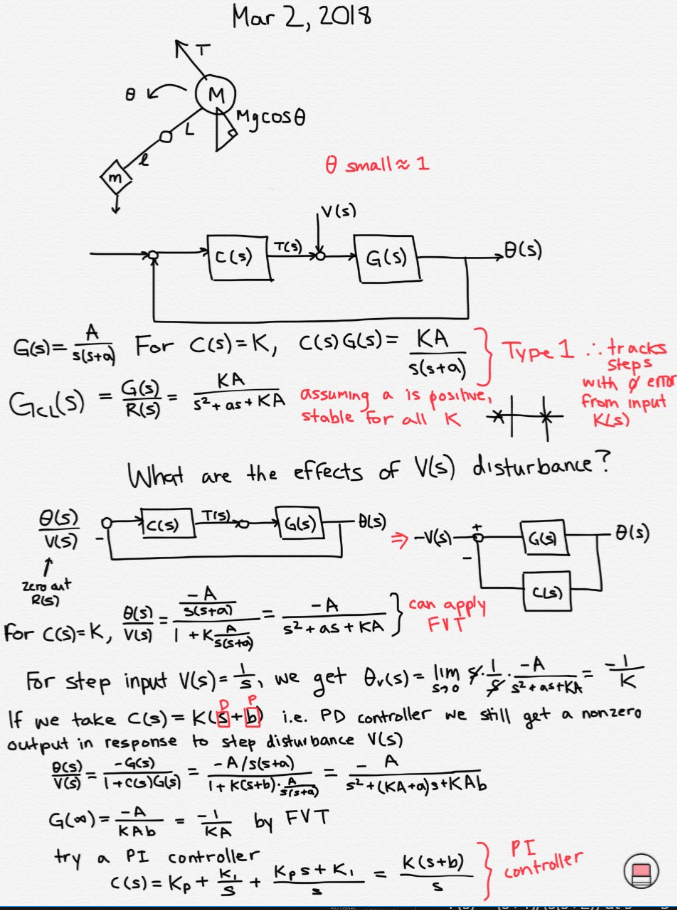 Mar 2, 2018
T
θ
M
L
Mg cosθ
l
m
θ small ≈ 1
V(s)
C(s) T(s) G(s) θ(s)
G(s) = A / s(s+a) For C(s) = K, C(s) G(s) = KA / s(s+a) } Type 1 ∴ tracks steps with ∅ error from input K(s)
G_CL(s) = G(s) / R(s) = KA / s² + as + KA assuming a is positive, stable for all K
What are the effects of V(s) disturbance?
θ(s) / V(s) C(s) T(s) G(s) θ(s) ⇒ -V(s) + G(s) θ(s)
- -
↑ C(s)
zero out
R(s)
For C(s) = K, θ(s) / V(s) = -A / s(s+a) / 1 + K A / s(s+a) = -A / s² + as + KA } can apply FVT
For step input V(s) = 1/s, we get θᵥ(s) = lim s→0 s · 1/s · -A / s² + as + KA = -1 / K
D P
If we take C(s) = K(s + b) i.e. PD controller we still get a nonzero
output in response to step disturbance V(s)
θ(s) / V(s) = -G(s) / 1 + C(s)G(s) = -A/s(s+a) / 1 + K(s+b) · A / s(s+a) = - A / s² + (KA+a)s + KAb
G(∞) = -A / KAb = -1 / KA by FVT
try a PI controller
C(s) = Kp + K₁ / s + Kp s + K₁ / s = K(s+b) / s } PI controller